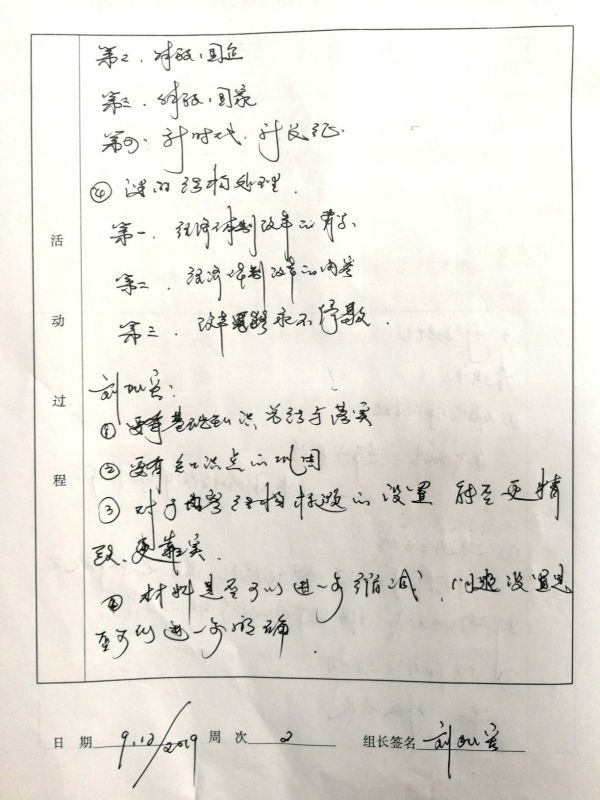 第二、财政·国企
第三、财政·国家
第四、新时代、新长征.
④ 课的结构处理.
第一、经济体制改革的背景
第二、经济体制改革的内容
第三、改革开放永不停歇.
活动过程
刘
① 要有基础知识总结与落实
② 要有知识点的巩固
③ 对于内容结构标题的设置 能否更精
致、更靠实.
④ 材料是否可以进一步缩减、问题设置是
否可以进一步明确.
日 期 9.12/2019 周 次 2 组长签名 刘